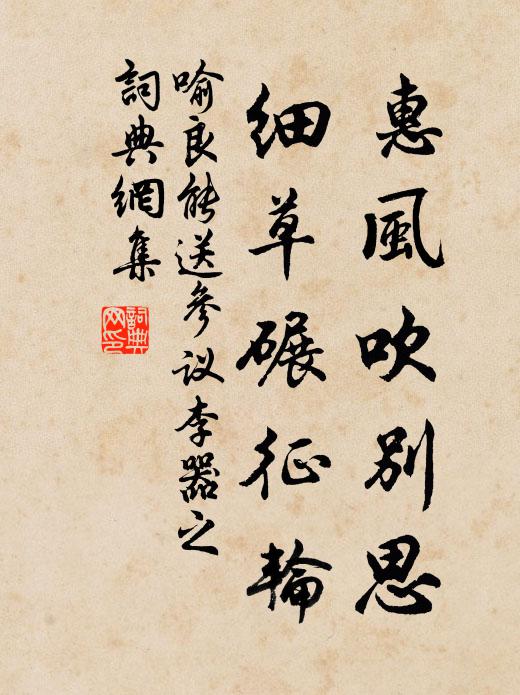 惠風吹別思
細草碾征輪
喻良能送參议李器之
詞典網集
詞典网印